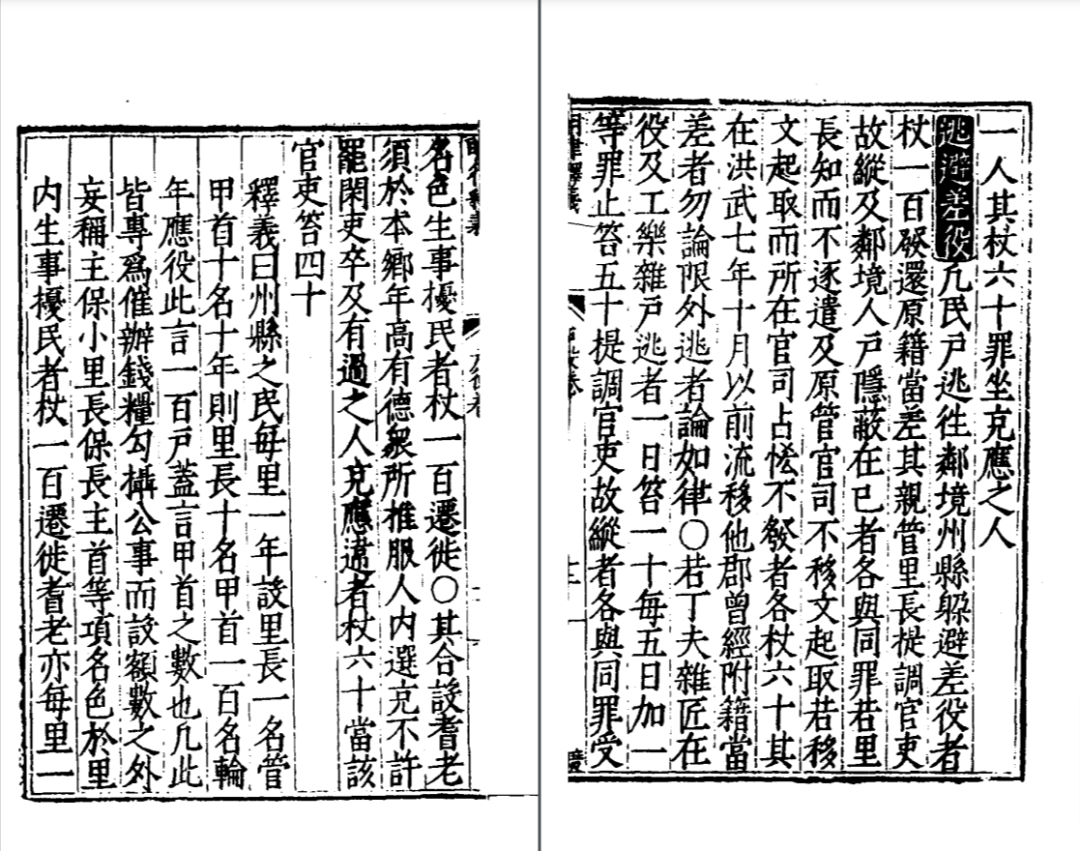 名色生事擾民者杖一百遷徙○其合設耆老
須於本鄉年高有德衆所推服人内選充不許
罷閑吏卒及有過之人充應違者杖六十當該
官吏笞四十
釋義曰州縣之民每里一年設里長一名管
甲首十名十年則里長十名甲首一百名輪
年應役此言一百戶蓋言甲首之數也凡此
皆專爲催辦錢糧勾攝公事而設額數之外
妄稱主保小里長保長主首等項名色於里
内生事擾民者杖一百遷徙耆老亦每里一
一人其杖六十罪坐充應之人
逃避差役凡民戶逃徃鄰境州縣躱避差役者
杖一百發還原籍當差其親管里長提調官吏
故縱及鄰境人戶隱蔽在已者各與同罪若里
長知而不逐遣及原管官司不移文起取若移
文起取而所在官司占恡不發者各杖六十其
在洪武七年十月以前流移他郡曾經附籍當
差者勿論限外逃者論如律○若丁夫雜匠在
役及工樂雜戶逃者一日笞一十每五日加一
等罪止笞五十提調官吏故縱者各與同罪受
明律釋義